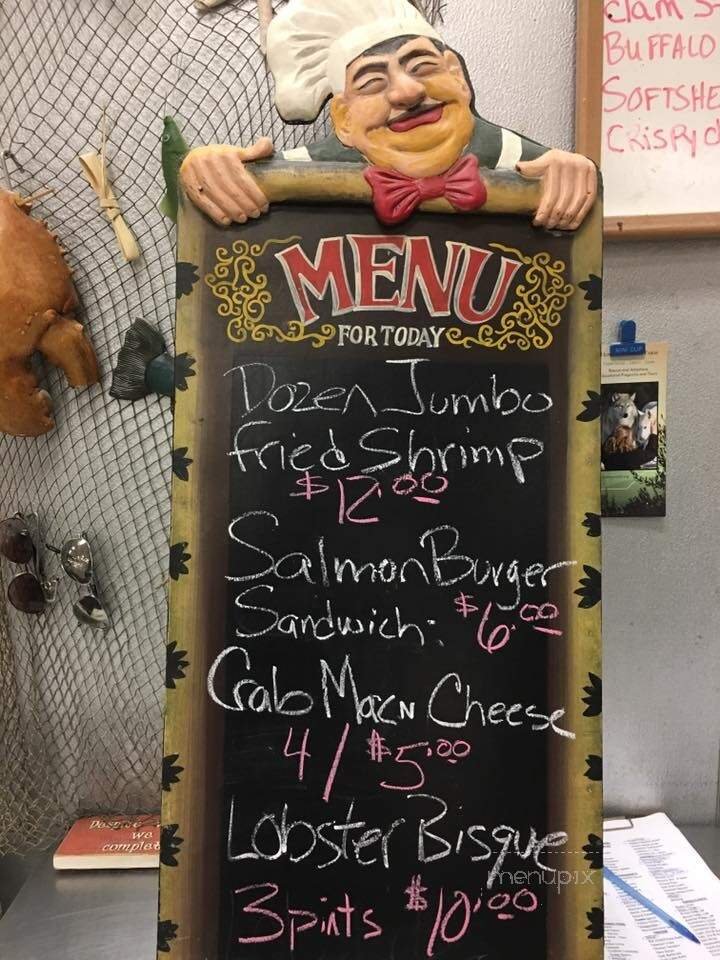 MENU
FOR TODAY
Dozen Jumbo
Fried Shrimp
$12.00
Salmon Burger
Sandwich: $6.00
Crab Mac N Cheese
4/$5.00
Lobster Bisque
3 pints $10.00
clam S
BUFFALO
SOFTSHE
CRISPY
we
menupix